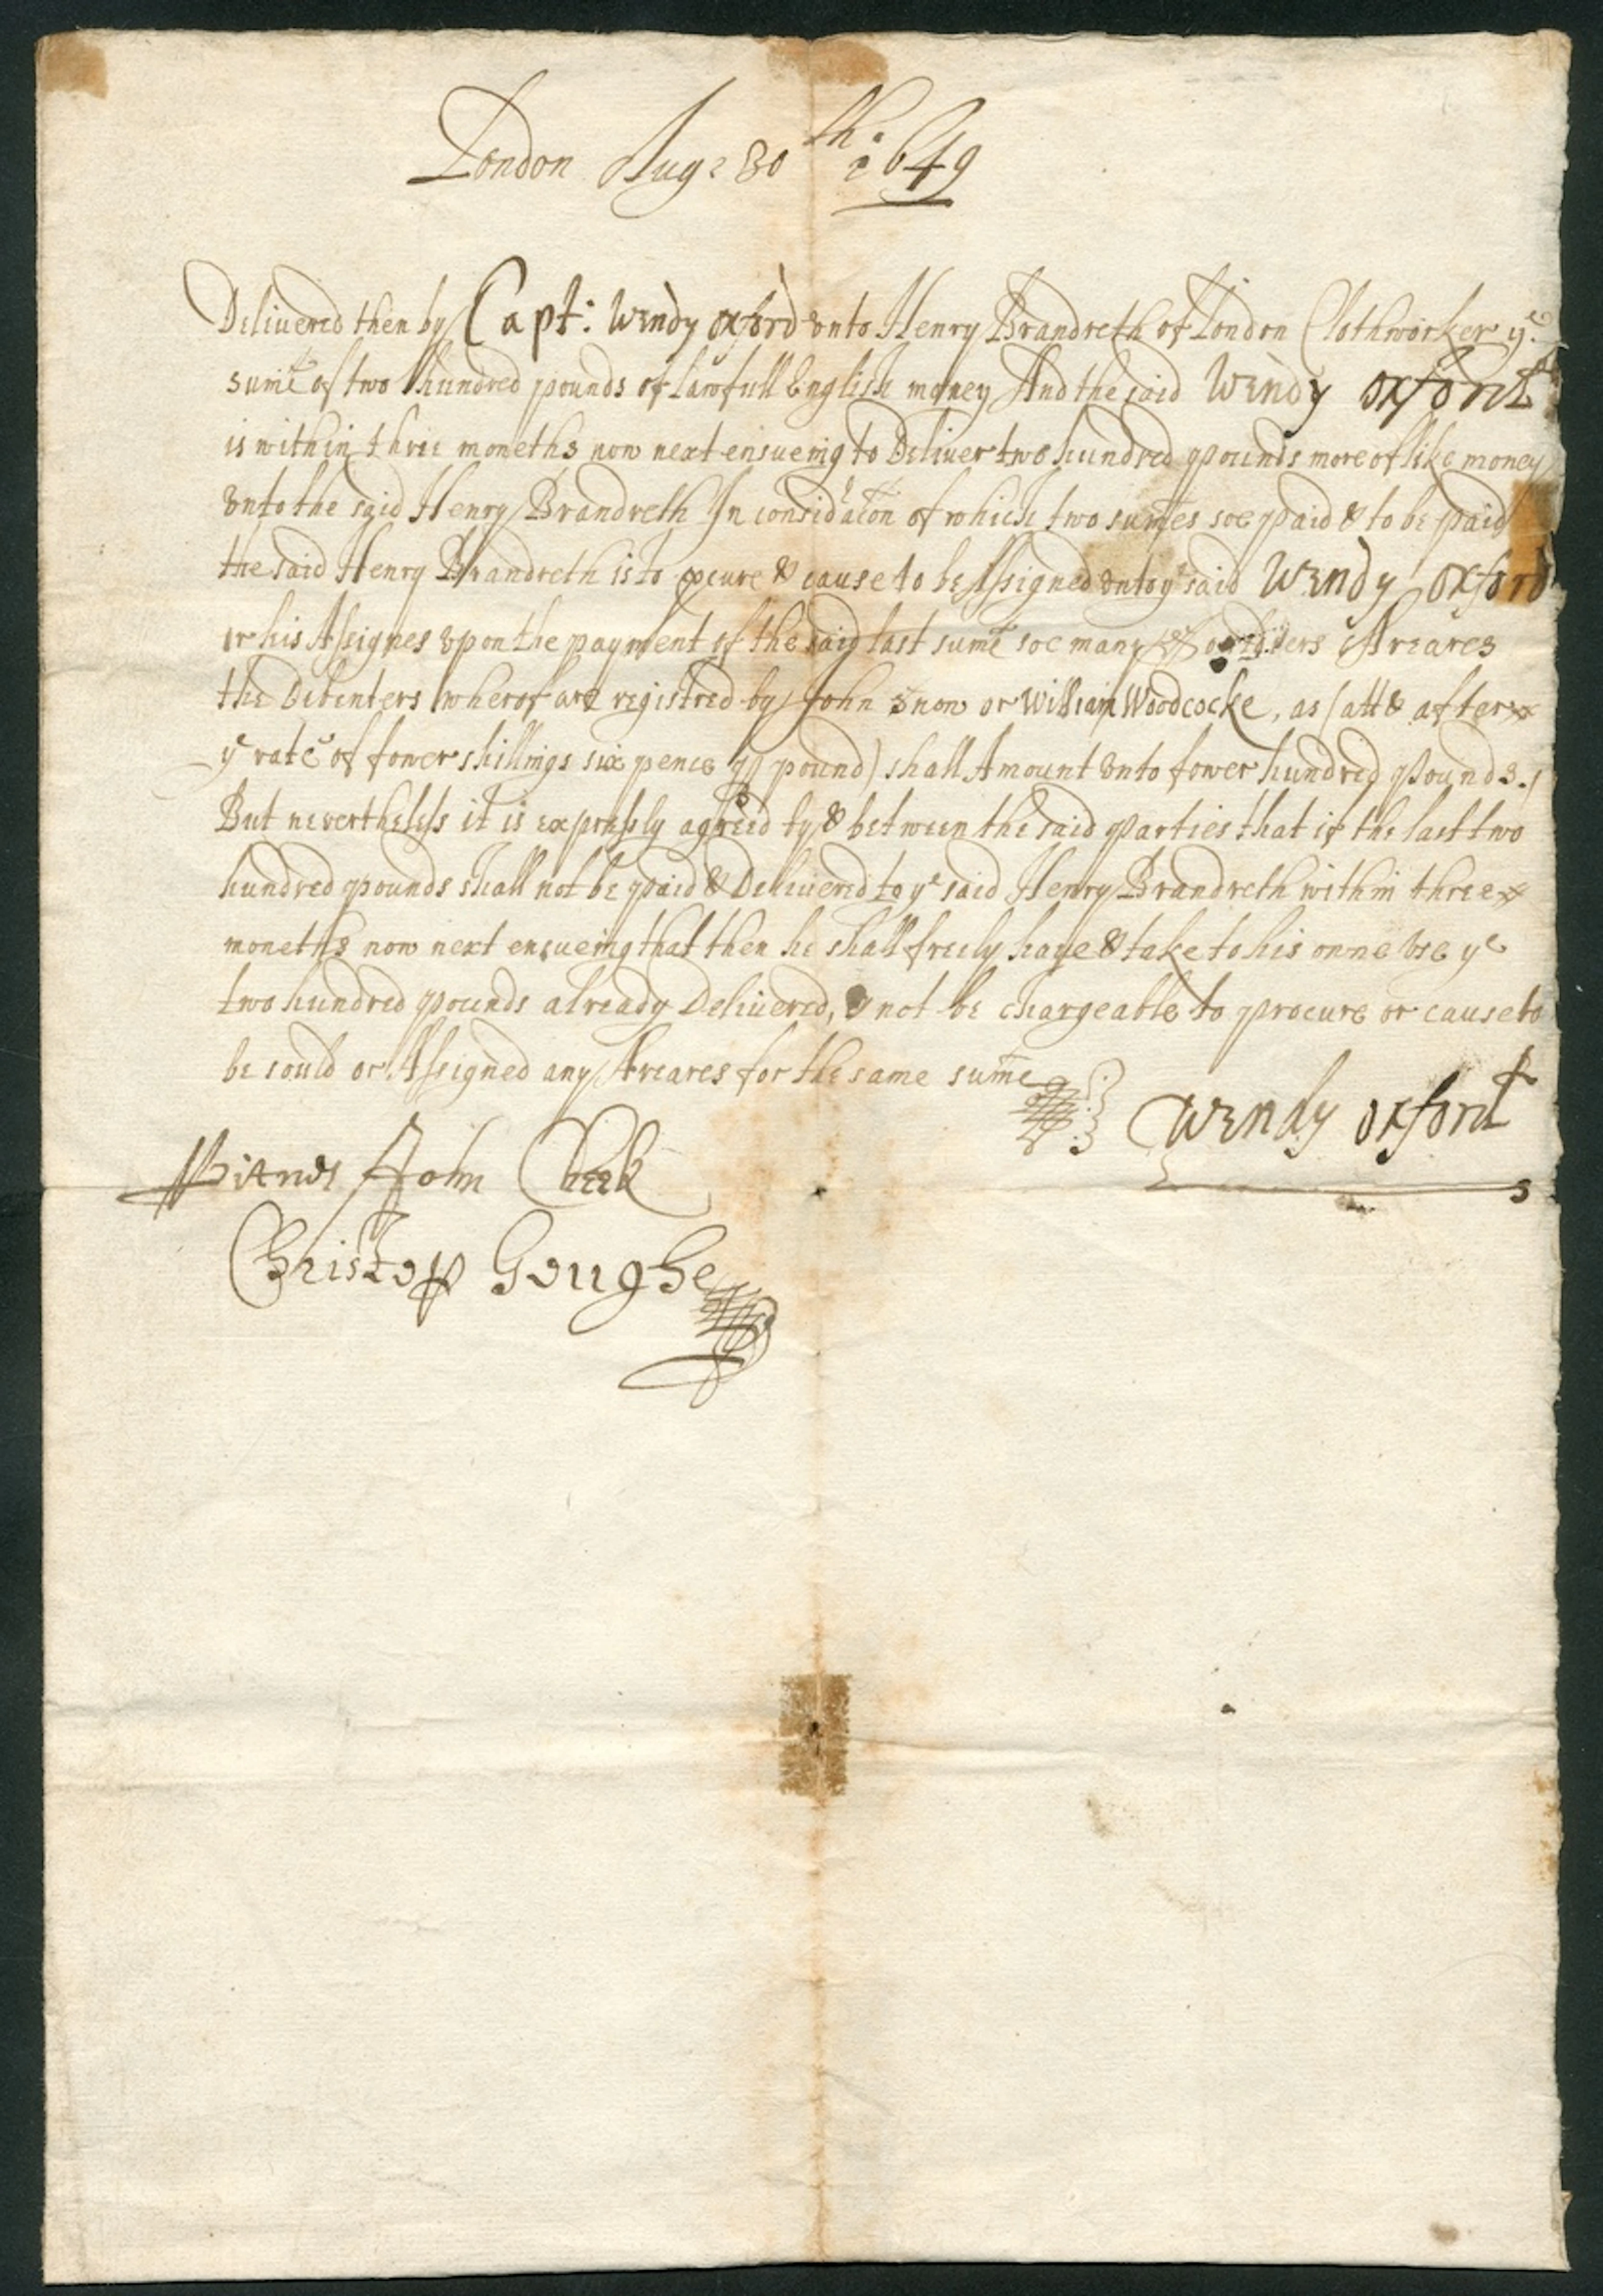 London Aug: 30th: 1649
Delivered then by Capt: Wendy Oxford vnto Henry Brandreth of London Clothworker ye
sume of two hundred pounds of lawfull English money And the said Wendy Oxford
is within three moneths now next ensueing to Deliver two hundred pounds more of like money
vnto the said Henry Brandreth In considãcon of which two sumes soe paid & to be paid
the said Henry Brandreth is to pcure & cause to be Assigned vnto ye said Wendy Oxford
or his Assignes vpon the payment of the said last sume soe many Souldiers Areares
the Debenters wherof are registred by John Snow or William Woodcocke, as (att & after
ye rate of fower shillings six pence p pound) shall Amount vnto fower hundred Pounds./
But nevertheless it is expressly agreed by & between the said Parties that if the last two
hundred pounds shall not be paid & Delivered to ye said Henry Brandreth within three
moneths now next ensueing that then he shall freely have & take to his owne vse ye
two hundred pounds already Delivered, & not be chargeable to procure or cause to
be sould or Assigned any Areares for the same sume
Wendy Oxford
Witnes John Cheek
Christop Goughe